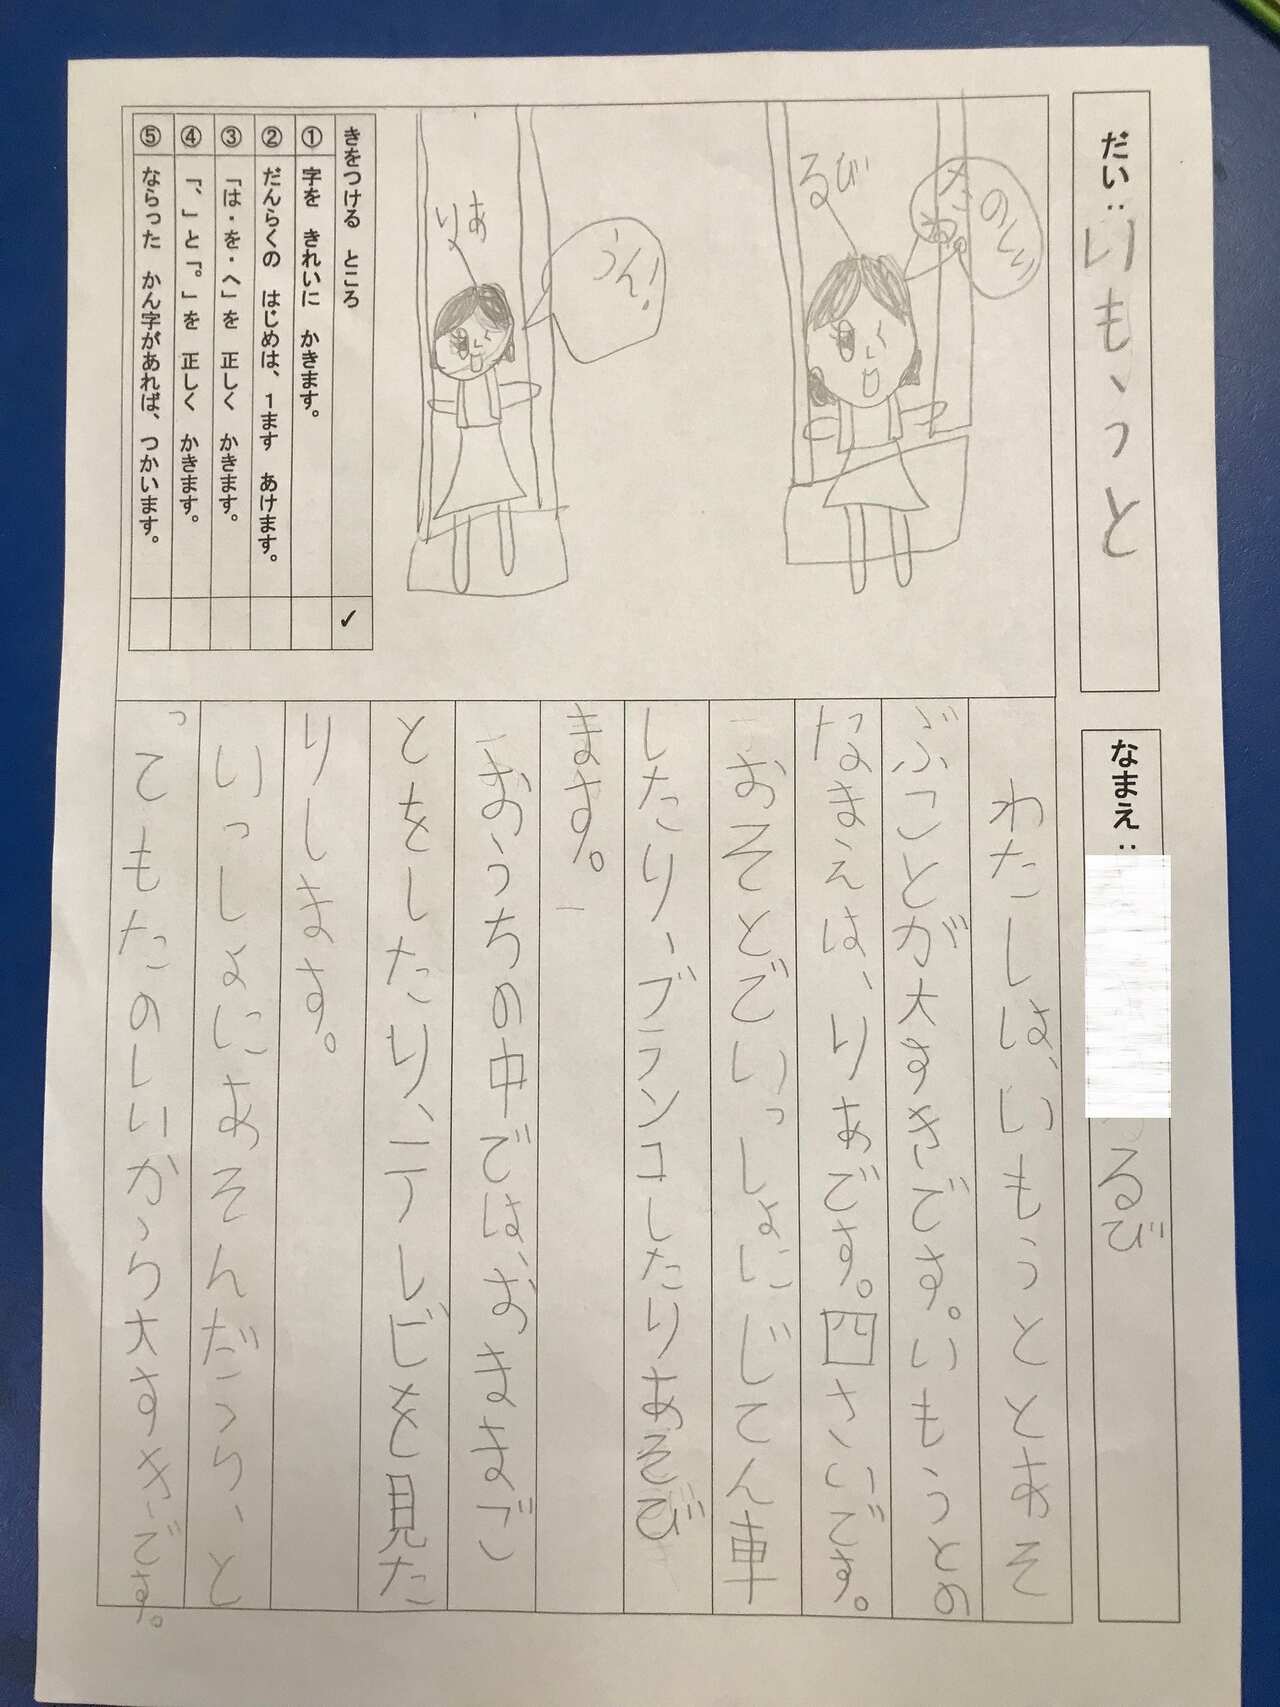 だい：いもうと
なまえ：るび
たのしいね。
るび
うん！
りあ
きをつける ところ ✓
① 字を きれいに かきます。
② だんらくの はじめは、1ます あけます。
③ 「は・を・へ」を 正しく かきます。
④ 「、」と「。」を 正しく かきます。
⑤ ならった かん字があれば、つかいます。
わたしは、いもうととあそ
ぶことが大すきです。いもうとの
なまえは、りあです。四さいです。
おそとでいっしょにじてん車
したり、ブランコしたりあそび
ます。
おうちの中では、おままご
とをしたり、テレビを見た
りします。
いっしょにあそんだら、と
ってもたのしいから大すきです。